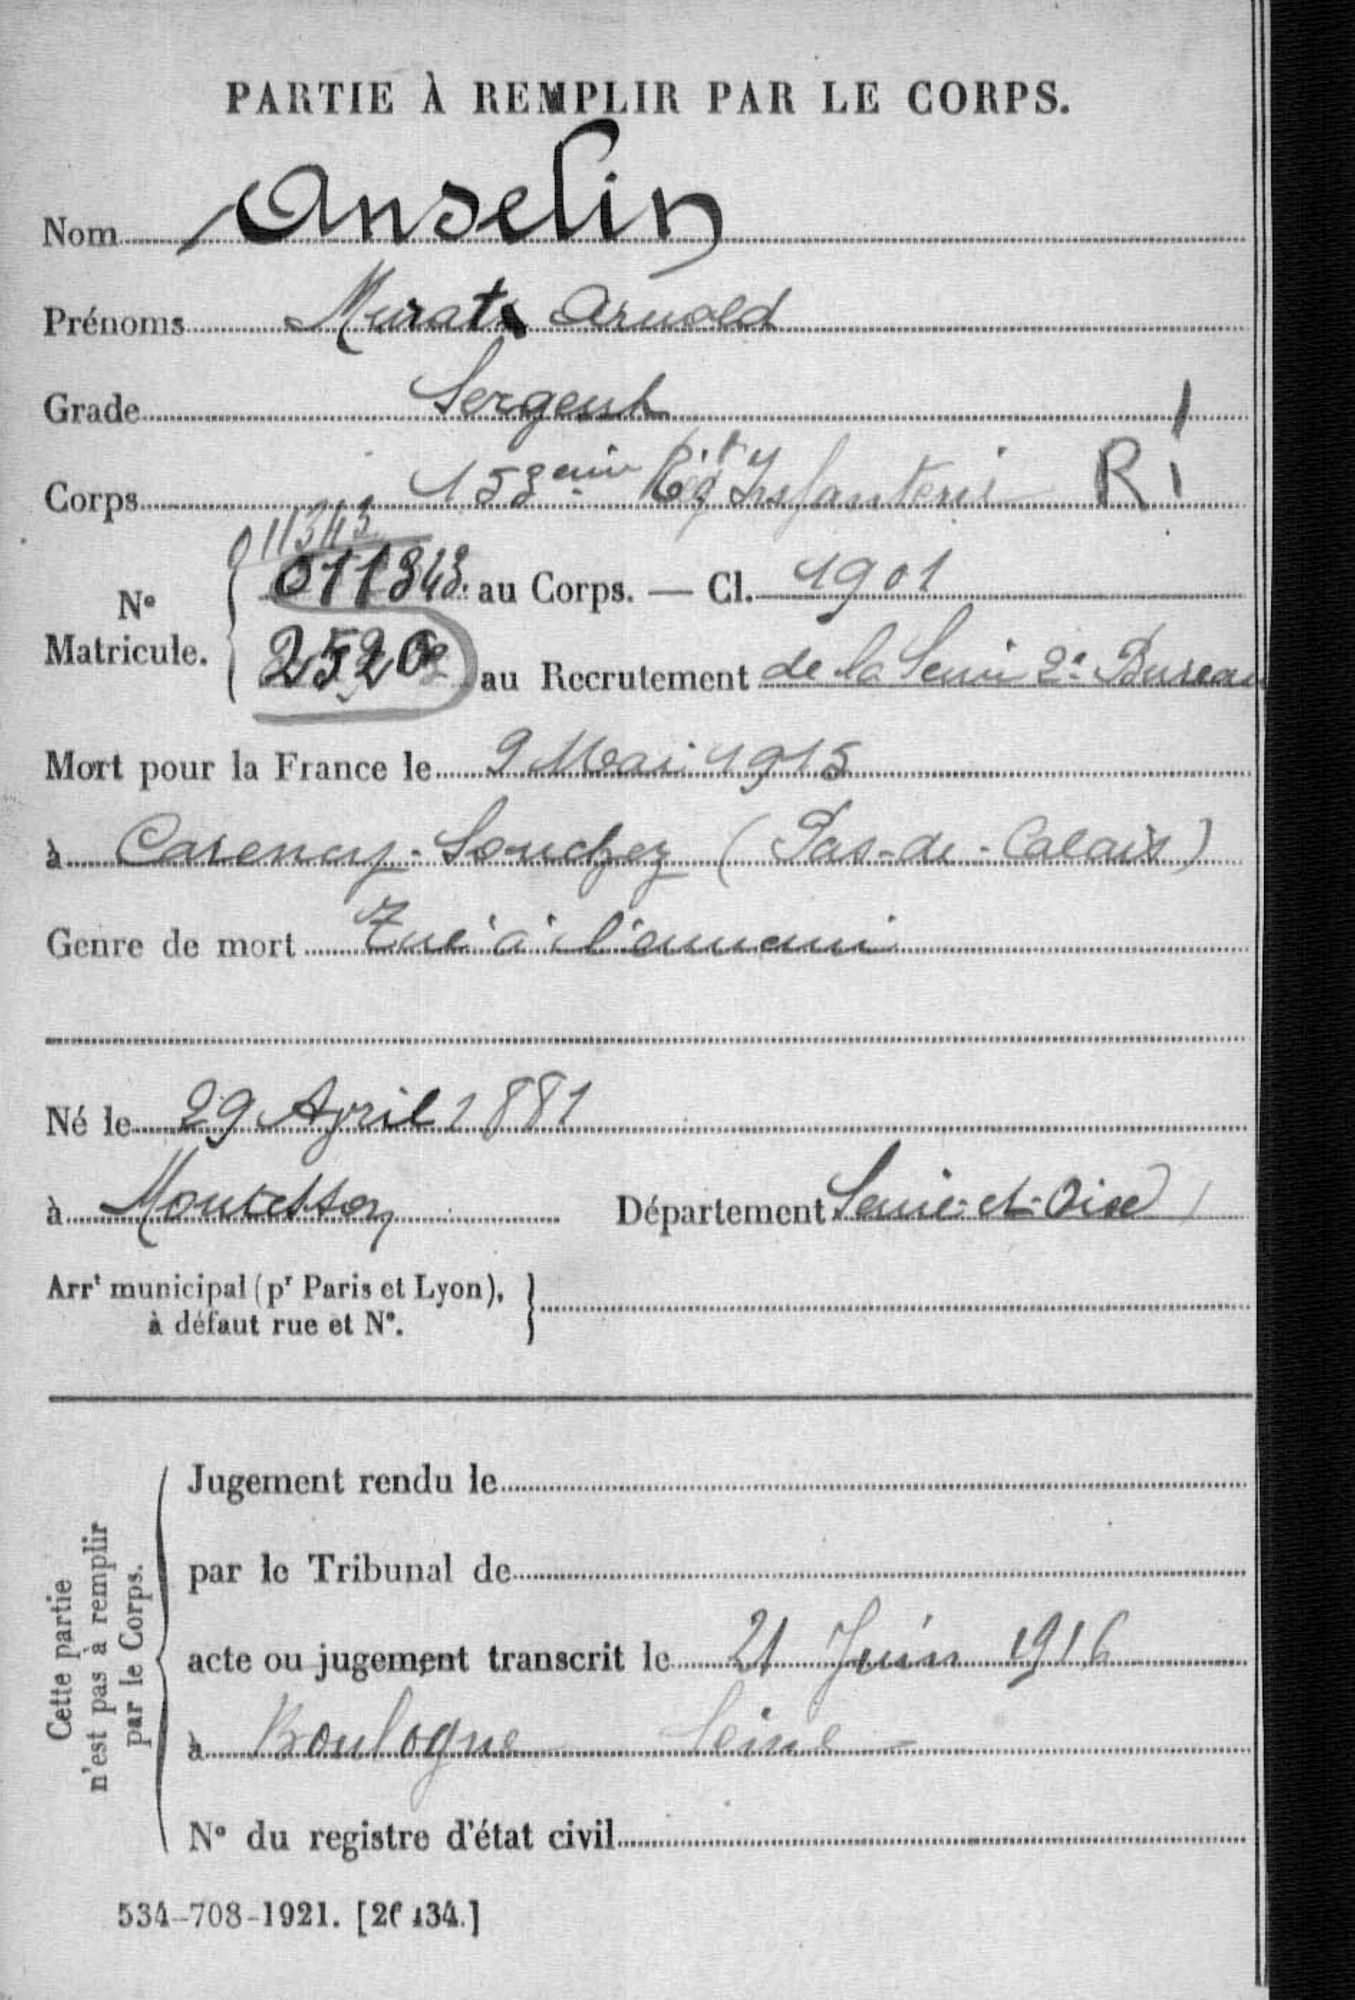 PARTIE À REMPLIR PAR LE CORPS.
Nom Anselin
Prénoms Murat Arnold
Grade Sergent
Corps 153eme Régt Infanterie R I
011343
N° Matricule. 011343 au Corps. — Cl. 1901
2520 au Recrutement de la Seine 2e Bureau
Mort pour la France le 9 Mai 1915
à Carency-Souchez (Pas-de-Calais)
Genre de mort Tué à l'ennemi
Né le 29 Avril 1881
à Montesson Département Seine-et-Oise
Arrt municipal (pr Paris et Lyon),
à défaut rue et N°.
Cette partie
n'est pas à remplir
par le Corps.
Jugement rendu le
par le Tribunal de
acte ou jugement transcrit le 21 Juin 1916
à Boulogne Seine
N° du registre d'état civil
534-708-1921. [26434.]